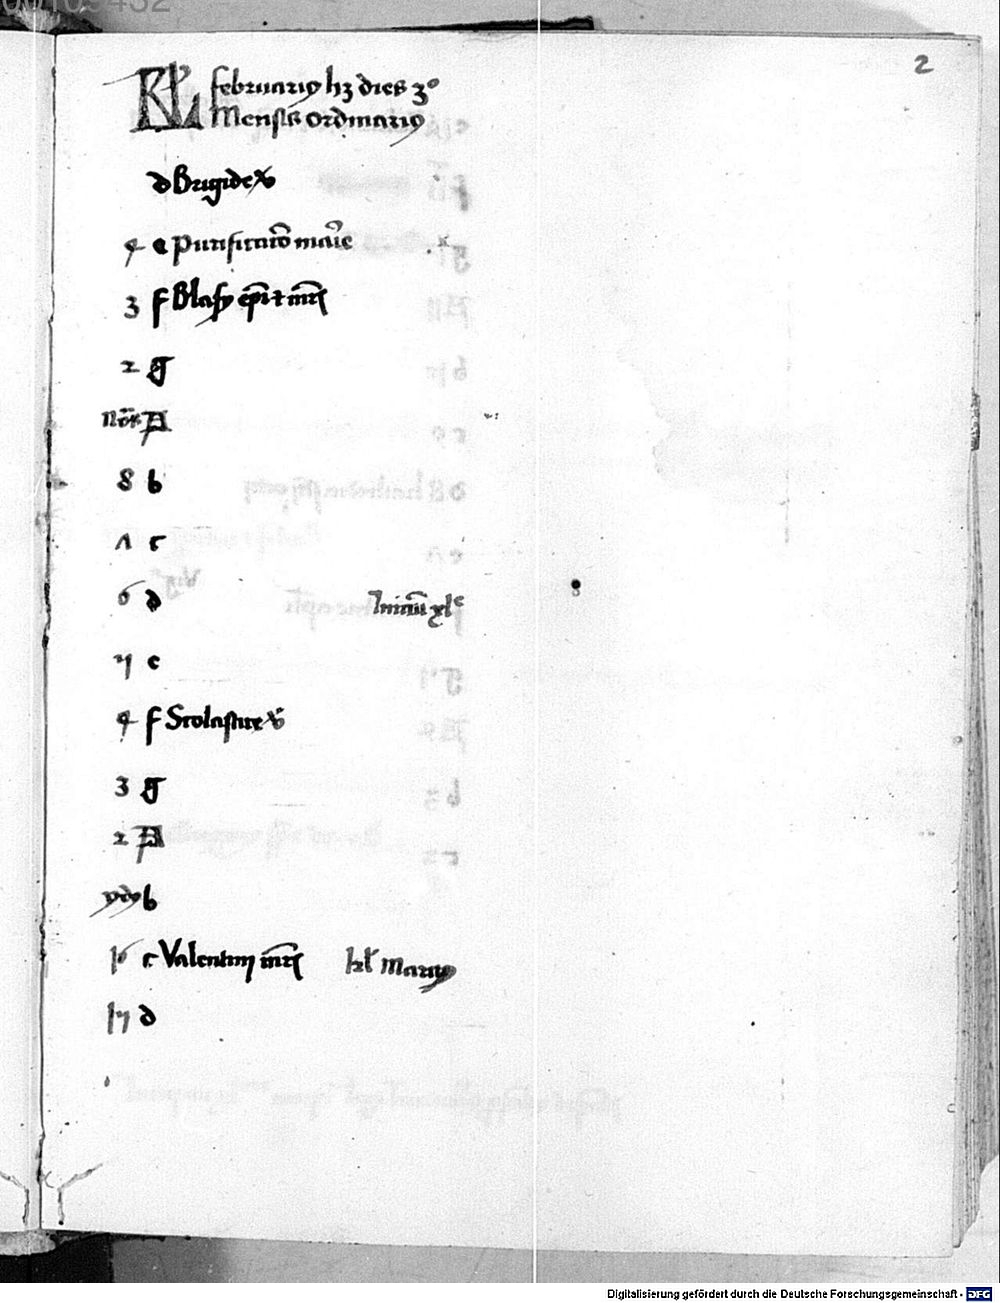 2
KL februarius hȝ dies 3º
Mensis ordinarius
d Brigide v̄
4 e Purificatiõ marie
3 f Blasy ep̄i et mr̄is
2 g
Nōn A
8 b
Λ c
6 d Initiū xlᵉ
5 e
4 f Scolastice v̄
3 g
2 A
ydus b
16 c Valentini mr̄is kl̄ Marcy
15 d
Digitalisierung gefördert durch die Deutsche Forschungsgemeinschaft - DFG